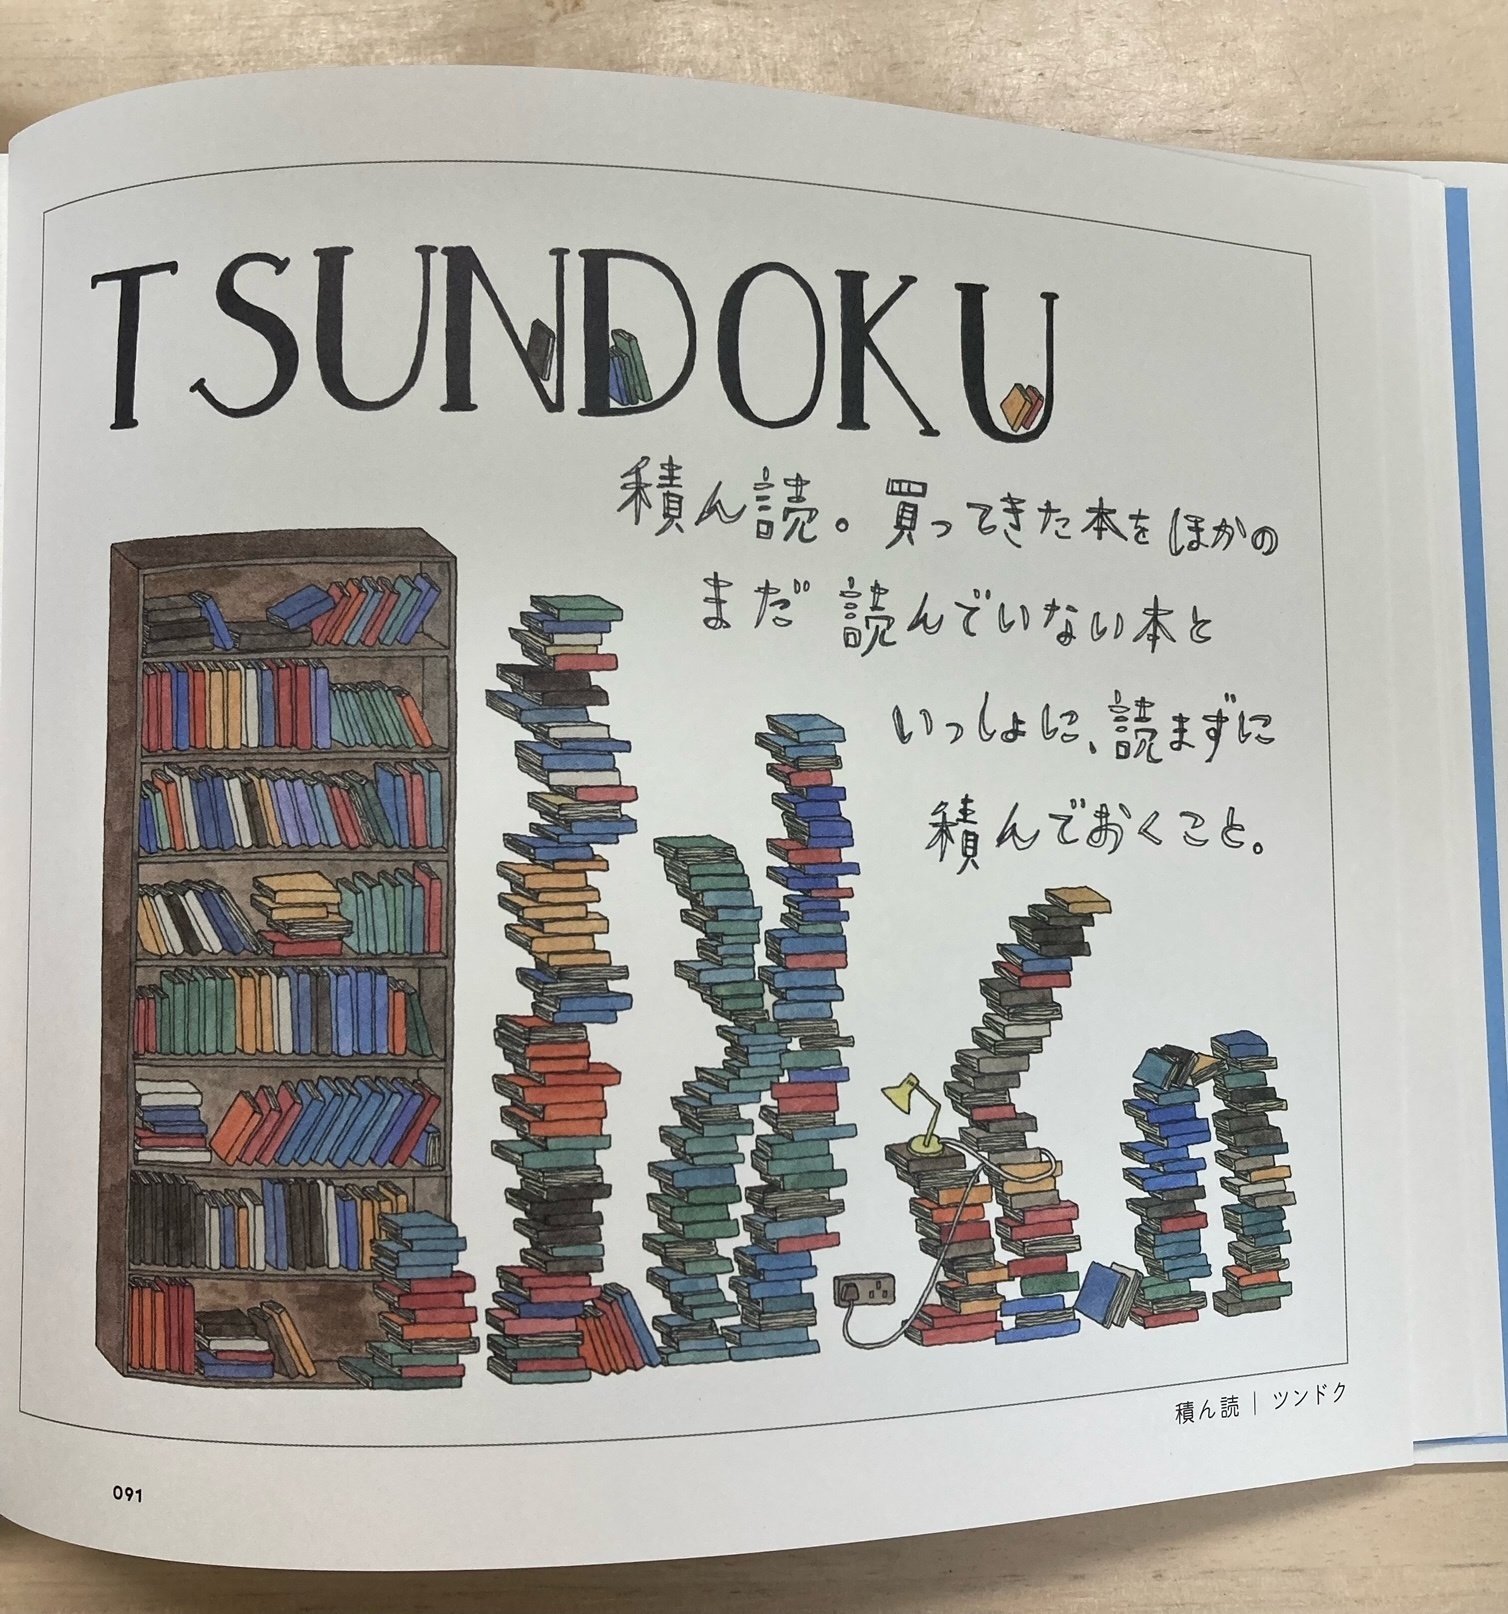 TSUNDOKU
積ん読。買ってきた本をほかの
まだ読んでいない本と
いっしょに、読まずに
積んでおくこと。
積ん読 | ツンドク
091